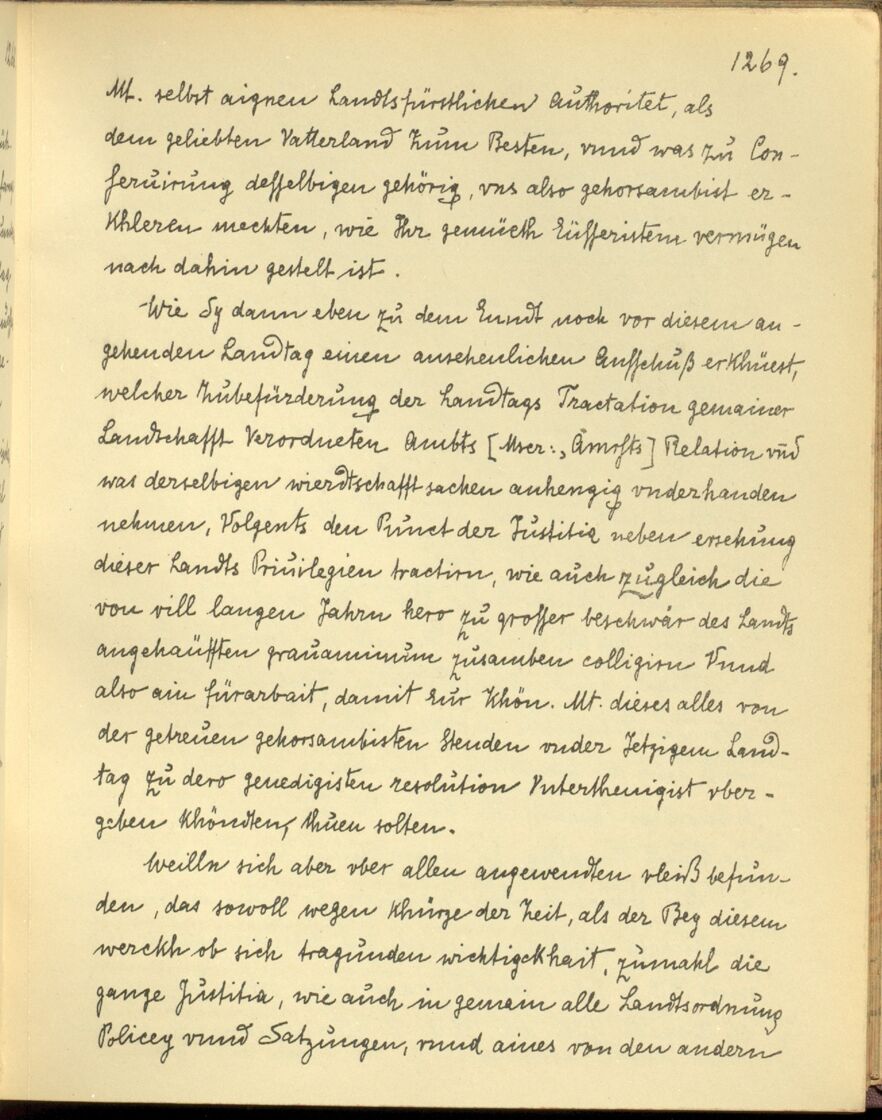 1269.
Mt. selbst aignen Landtsfürstlichen Authoritet, als
dem geliebten Vatterland Zum Besten, vnnd was zu Con-
seruirung desselbigen gehörig, vns also gehorsambist er-
Khleren mechten, wie Ihr gemüeth Eüsseristem vermügen
nach dahin gestelt ist.
Wie Sy dann eben zu dem Enndt noch vor diesem an-
gehenden Landtag einen ansehenlichen Ausschuß erKhüest,
welcher Zubefürderung der Landtags Tractation gemainer
Landschafft Verordneten Ambts [Mscr:, Ämrsts] Relation vnd
was derselbigen wierdtschafft sachen anhengig vnderhanden
nehmen, Volgents den Punct der Justitia neben ersehung
dieser Landts Priuilegien tractirn, wie auch zugleich die
von vill langen Jahrn hero zu grosser beschwär des Landts
angehaüfften grauaminum zusamben colligirn Vnnd
also ain fürarbait, damit Eur Khön. Mt. dieses alles von
der getreuen gehorsambisten Stenden vnder Jetzigem Land-
tag zu dero genedigisten resolution Vnterthenigist vber-
geben Khöndten, thuen solten.
Weilln sich aber vber allen angewendten vleiß befun-
den, das sowoll wegen Khürze der Zeit, als der Bey diesem
werckh ob sich tragunden wichtigckhait, zumahl die
gange Justitia, wie auch in gemain alle Landtsordnung
Policey vnnd Satzungen, vnnd aines von den andern